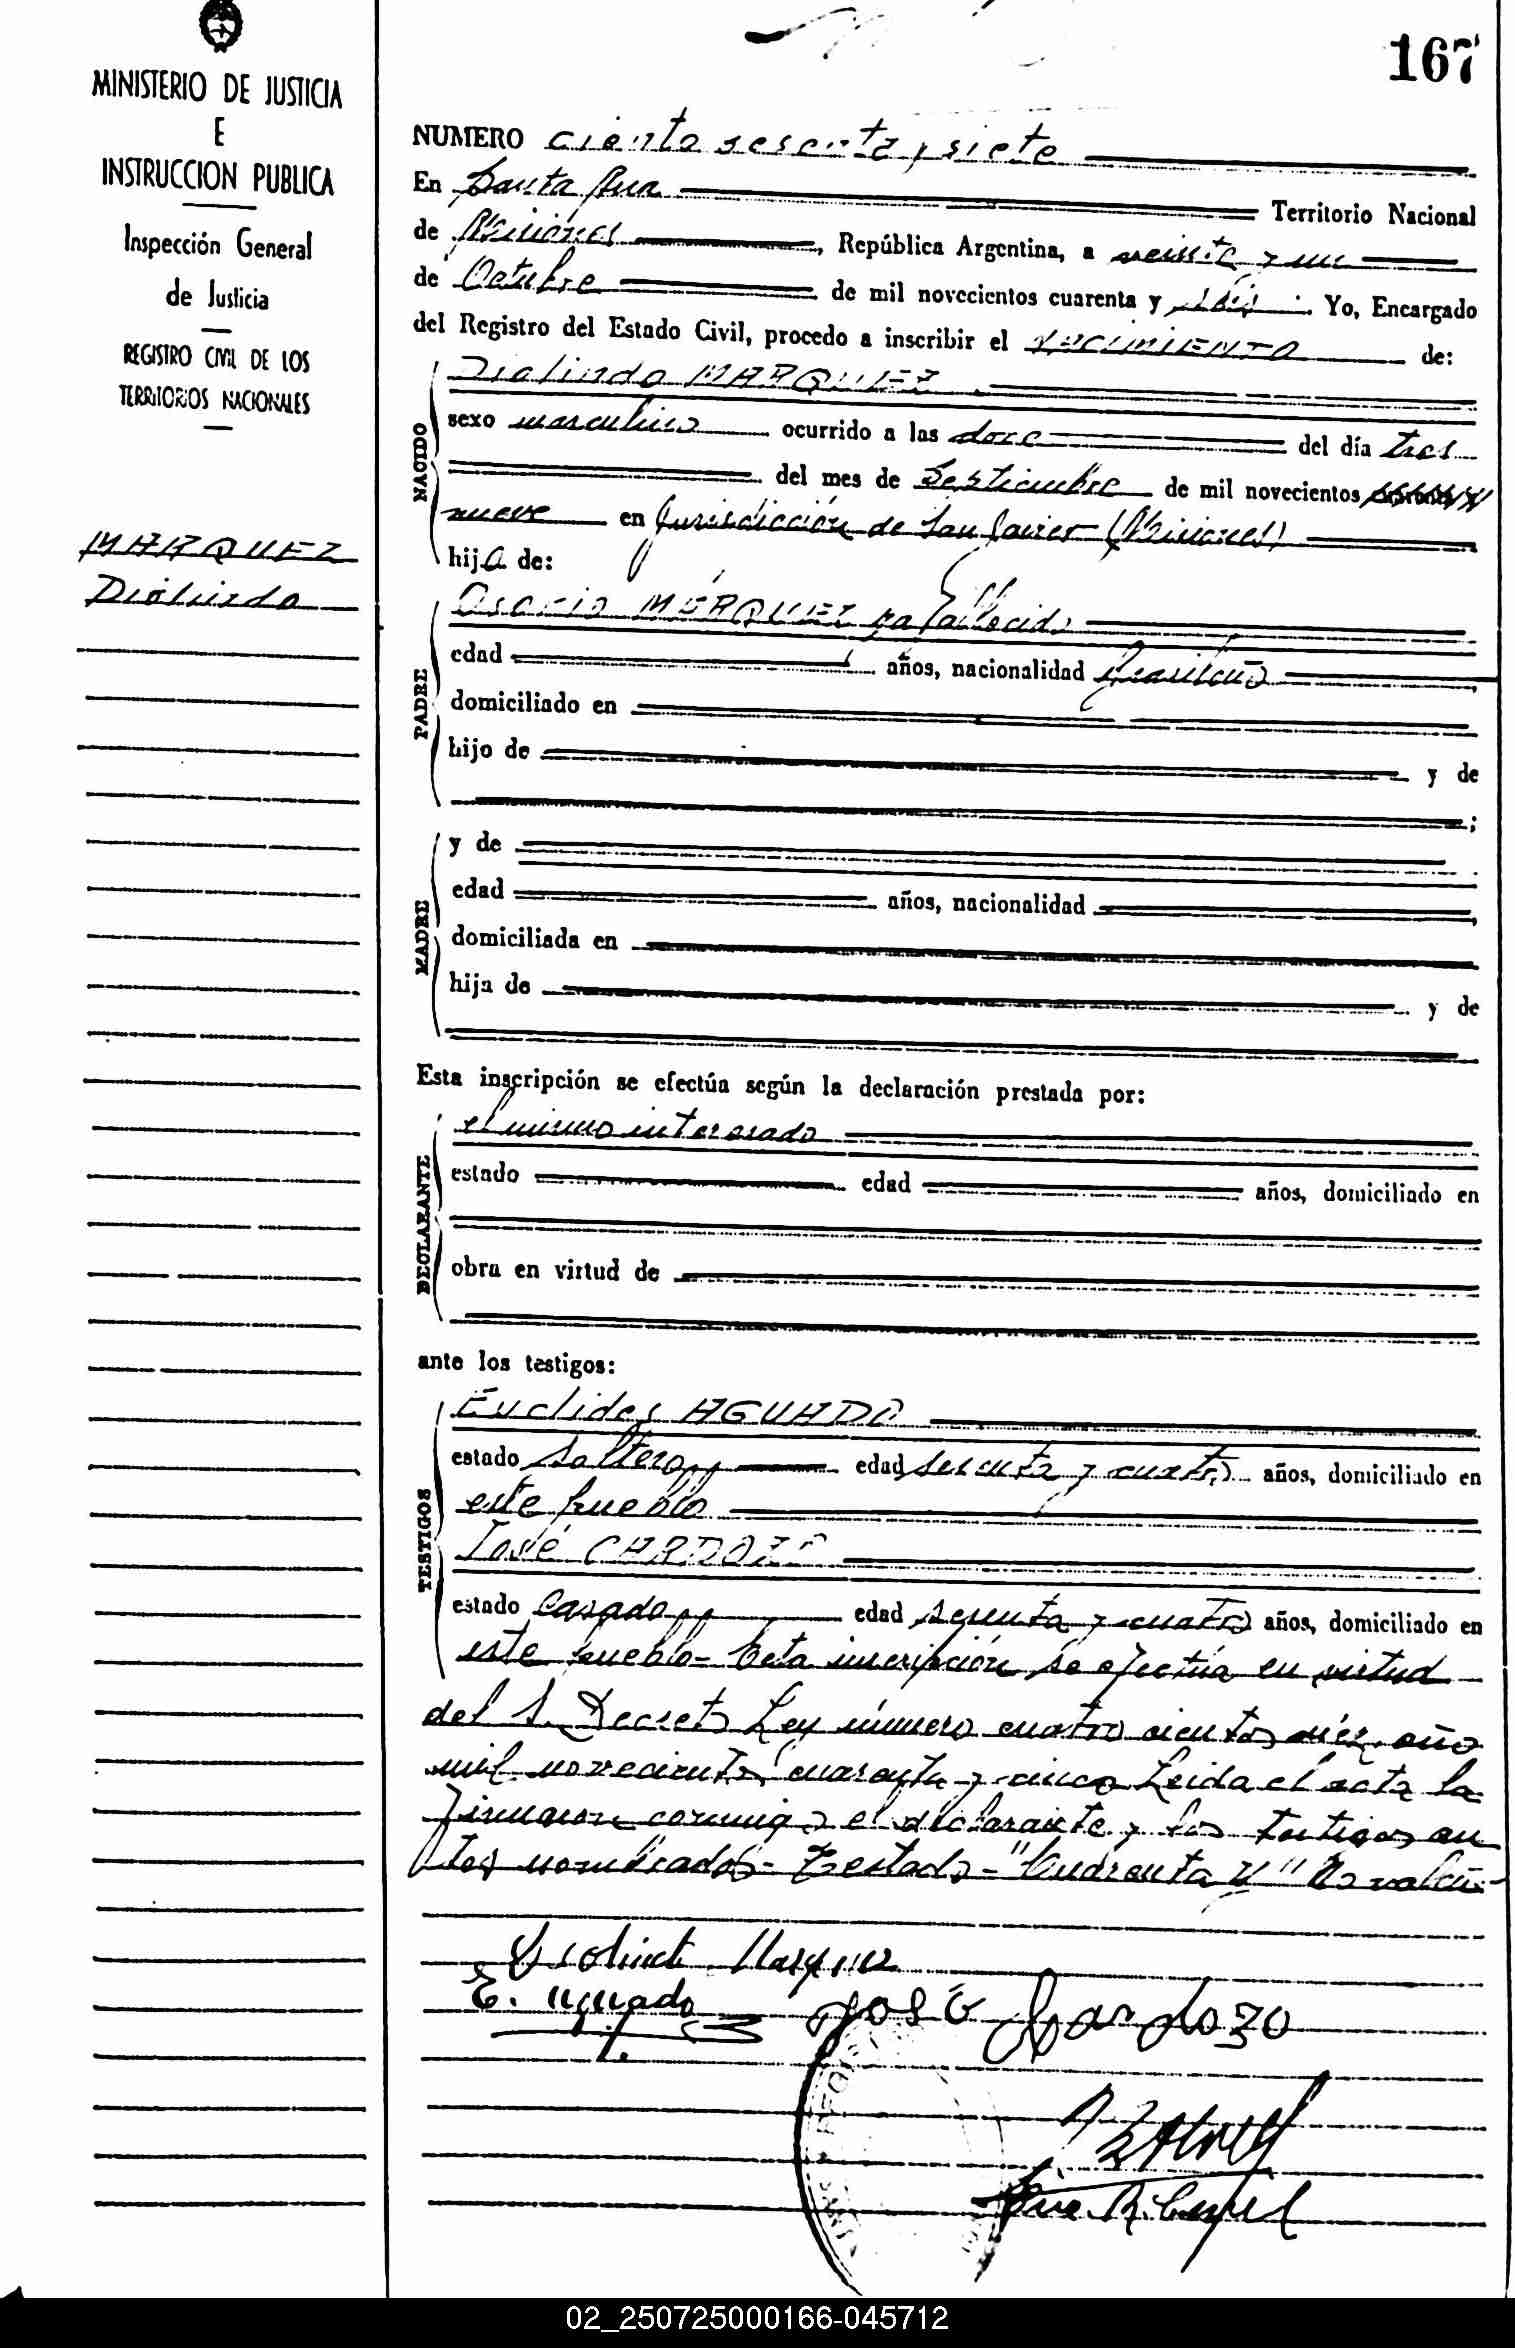 167
MINISTERIO DE JUSTICIA
E
INSTRUCCION PUBLICA
Inspección General
de Justicia
REGISTRO CIVIL DE LOS
TERRITORIOS NACIONALES
MARQUEZ
Diolindo
NUMERO ciento sesenta y siete
En Santa Ana Territorio Nacional
de Misiones, República Argentina, a veinte y un
de Octubre de mil novecientos cuarenta y seis. Yo, Encargado
del Registro del Estado Civil, procedo a inscribir el NACIMIENTO de:
NACIDO
Diolindo MARQUEZ
sexo masculino ocurrido a las doce del día tres
del mes de Septiembre de mil novecientos
nueve en Jurisdicción de San Javier (Misiones)
hijo de:
PADRE
Osorio MÁRQUEZ ya fallecido
edad años, nacionalidad brasileño
domiciliado en
hijo de y de
;
MADRE
y de
edad años, nacionalidad
domiciliada en
hija de y de
Esta inscripción se efectúa según la declaración prestada por:
DECLARANTE
el mismo interesado
estado edad años, domiciliado en
obra en virtud de
ante los testigos:
TESTIGOS
Euclides AGUADO
estado soltero edad sesenta y cuatro años, domiciliado en
este pueblo
José CARDOZO
estado casado edad sesenta y cuatro años, domiciliado en
este pueblo- Esta inscripción se efectúa en virtud
del S. Decreto Ley número cuatro cientos diez año
mil novecientos cuarenta y cinco Leida el acta la
firmaron conmigo el declarante y los testigos an
tes nombrados- Testado- "Cuarenta y" No vale
Diolindo Marquez
E. Aguado
José Cardozo
02_250725000166-045712